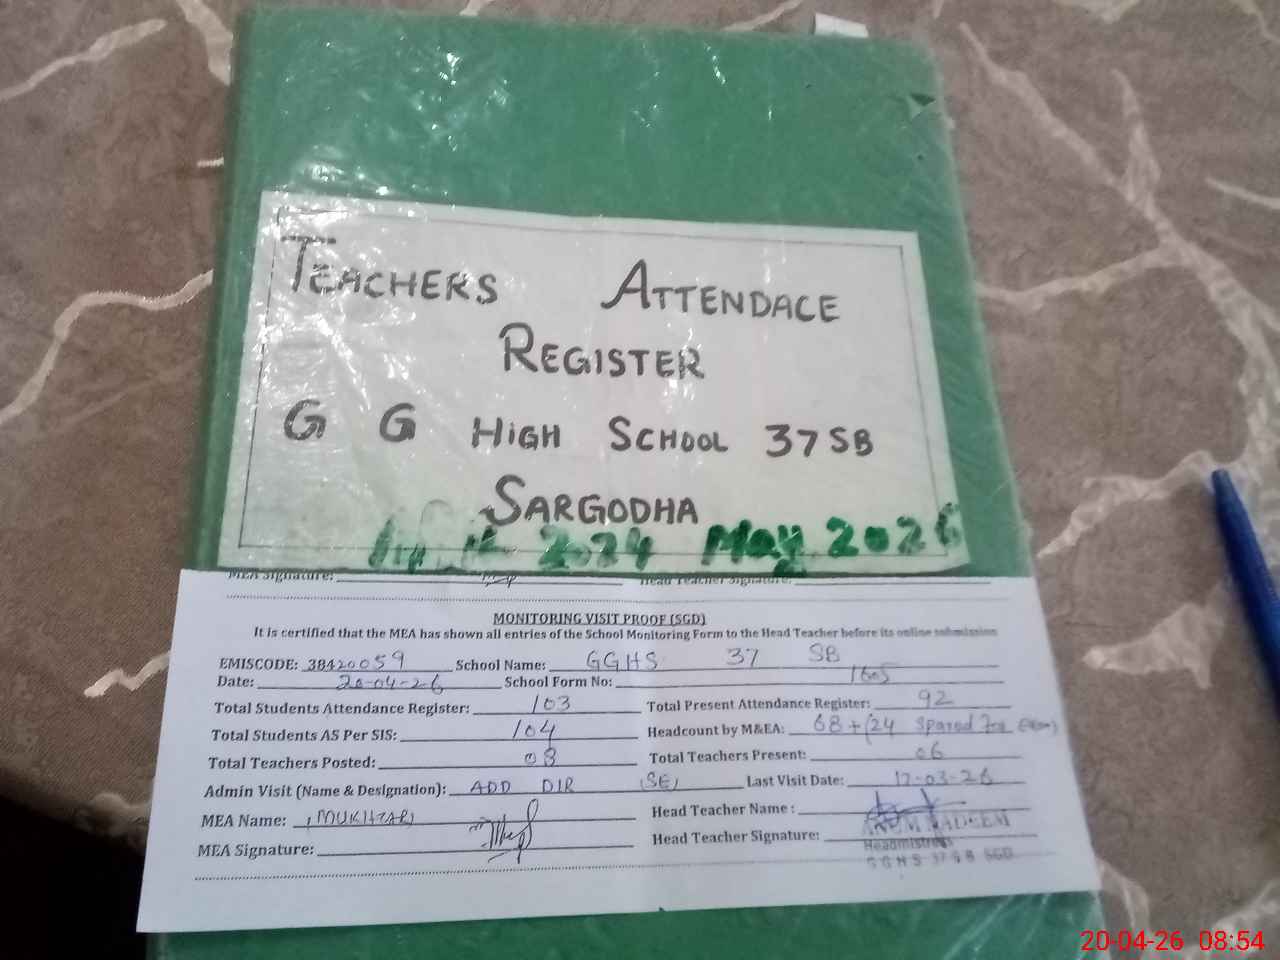 TEACHERS ATTENDACE
REGISTER
G G HIGH SCHOOL 37 SB
SARGODHA
2024 May 2026
MEA Signature: Head Teacher Signature:
MONITORING VISIT PROOF (SGD)
It is certified that the MEA has shown all entries of the School Monitoring Form to the Head Teacher before its online submission
EMISCODE: 38420059 School Name: GGHS 37 SB
Date: 20-04-26 School Form No: 1605
Total Students Attendance Register: 103 Total Present Attendance Register: 92
Total Students AS Per SIS: 104 Headcount by M&EA: 68+(24 Spared For Exam)
Total Teachers Posted: 08 Total Teachers Present: 06
Admin Visit (Name & Designation): ADD DIR (SE) Last Visit Date: 17-03-26
MEA Name: (MUKHTAR) Head Teacher Name :
MEA Signature: Head Teacher Signature: NADEEM
Headmistress
G G H S 37 S B SGD
20-04-26 08:54